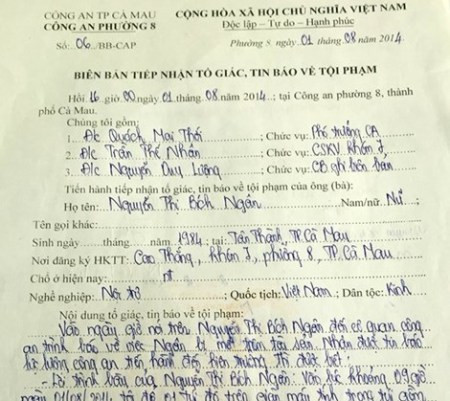 CÔNG AN TP CÀ MAU
CÔNG AN PHƯỜNG 8
CỘNG HÒA XÃ HỘI CHỦ NGHĨA VIỆT NAM
Độc lập – Tự do – Hạnh phúc
Số: 06 /BB-CAP
Phường 8, ngày 01 tháng 08 năm 2014
BIÊN BẢN TIẾP NHẬN TỐ GIÁC, TIN BÁO VỀ TỘI PHẠM
Hồi 16 giờ 00 ngày 01 tháng 08 năm 2014; tại Công an phường 8, thành
phố Cà Mau.
Chúng tôi gồm:
1. Đ/c Quách Mai Thới ; Chức vụ: Phó trưởng CA
2. Đ/c Trần Thế Nhân ; Chức vụ: CSKV Khóm
3. Đ/c Nguyễn Duy Lượng ; Chức vụ: CB ghi biên bản
Tiến hành tiếp nhận tố giác, tin báo về tội phạm của ông (bà):
Họ tên: Nguyễn Thị Bích Ngân Nam/nữ: Nữ ;
Tên gọi khác:
Sinh ngày tháng năm 1984; tại: Tân Thành, TP Cà Mau
Nơi đăng ký HKTT: Cao Thắng, Khóm 7, phường 8, TP. Cà Mau
Chỗ ở hiện nay: nt
Nghề nghiệp: Nội trợ ; Quốc tịch: Việt Nam; Dân tộc: Kinh
Nội dung tố giác, tin báo về tội phạm:
Vào ngày giờ nói trên Nguyễn Thị Bích Ngân đến cơ quan công
an trình báo về việc Ngân bị mất trộm tài sản. Nhận được tin báo
lực lượng công an tiến hành đến hiện trường thì được biết:
- Lời trình bày của Nguyễn Thị Bích Ngân: Vào lúc khoảng 09 giờ
ngày 01/08/2014